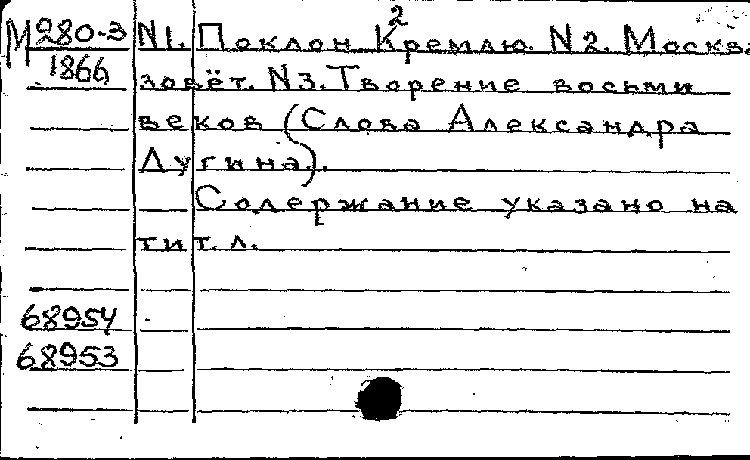 2
М 280-3 N1. Поклон Кремлю. N2. Москва
1866 зовёт. N3. Творение восьми
веков (Слова Александра
Дугина).
Содержание указано на
тит. л.
68954
68953